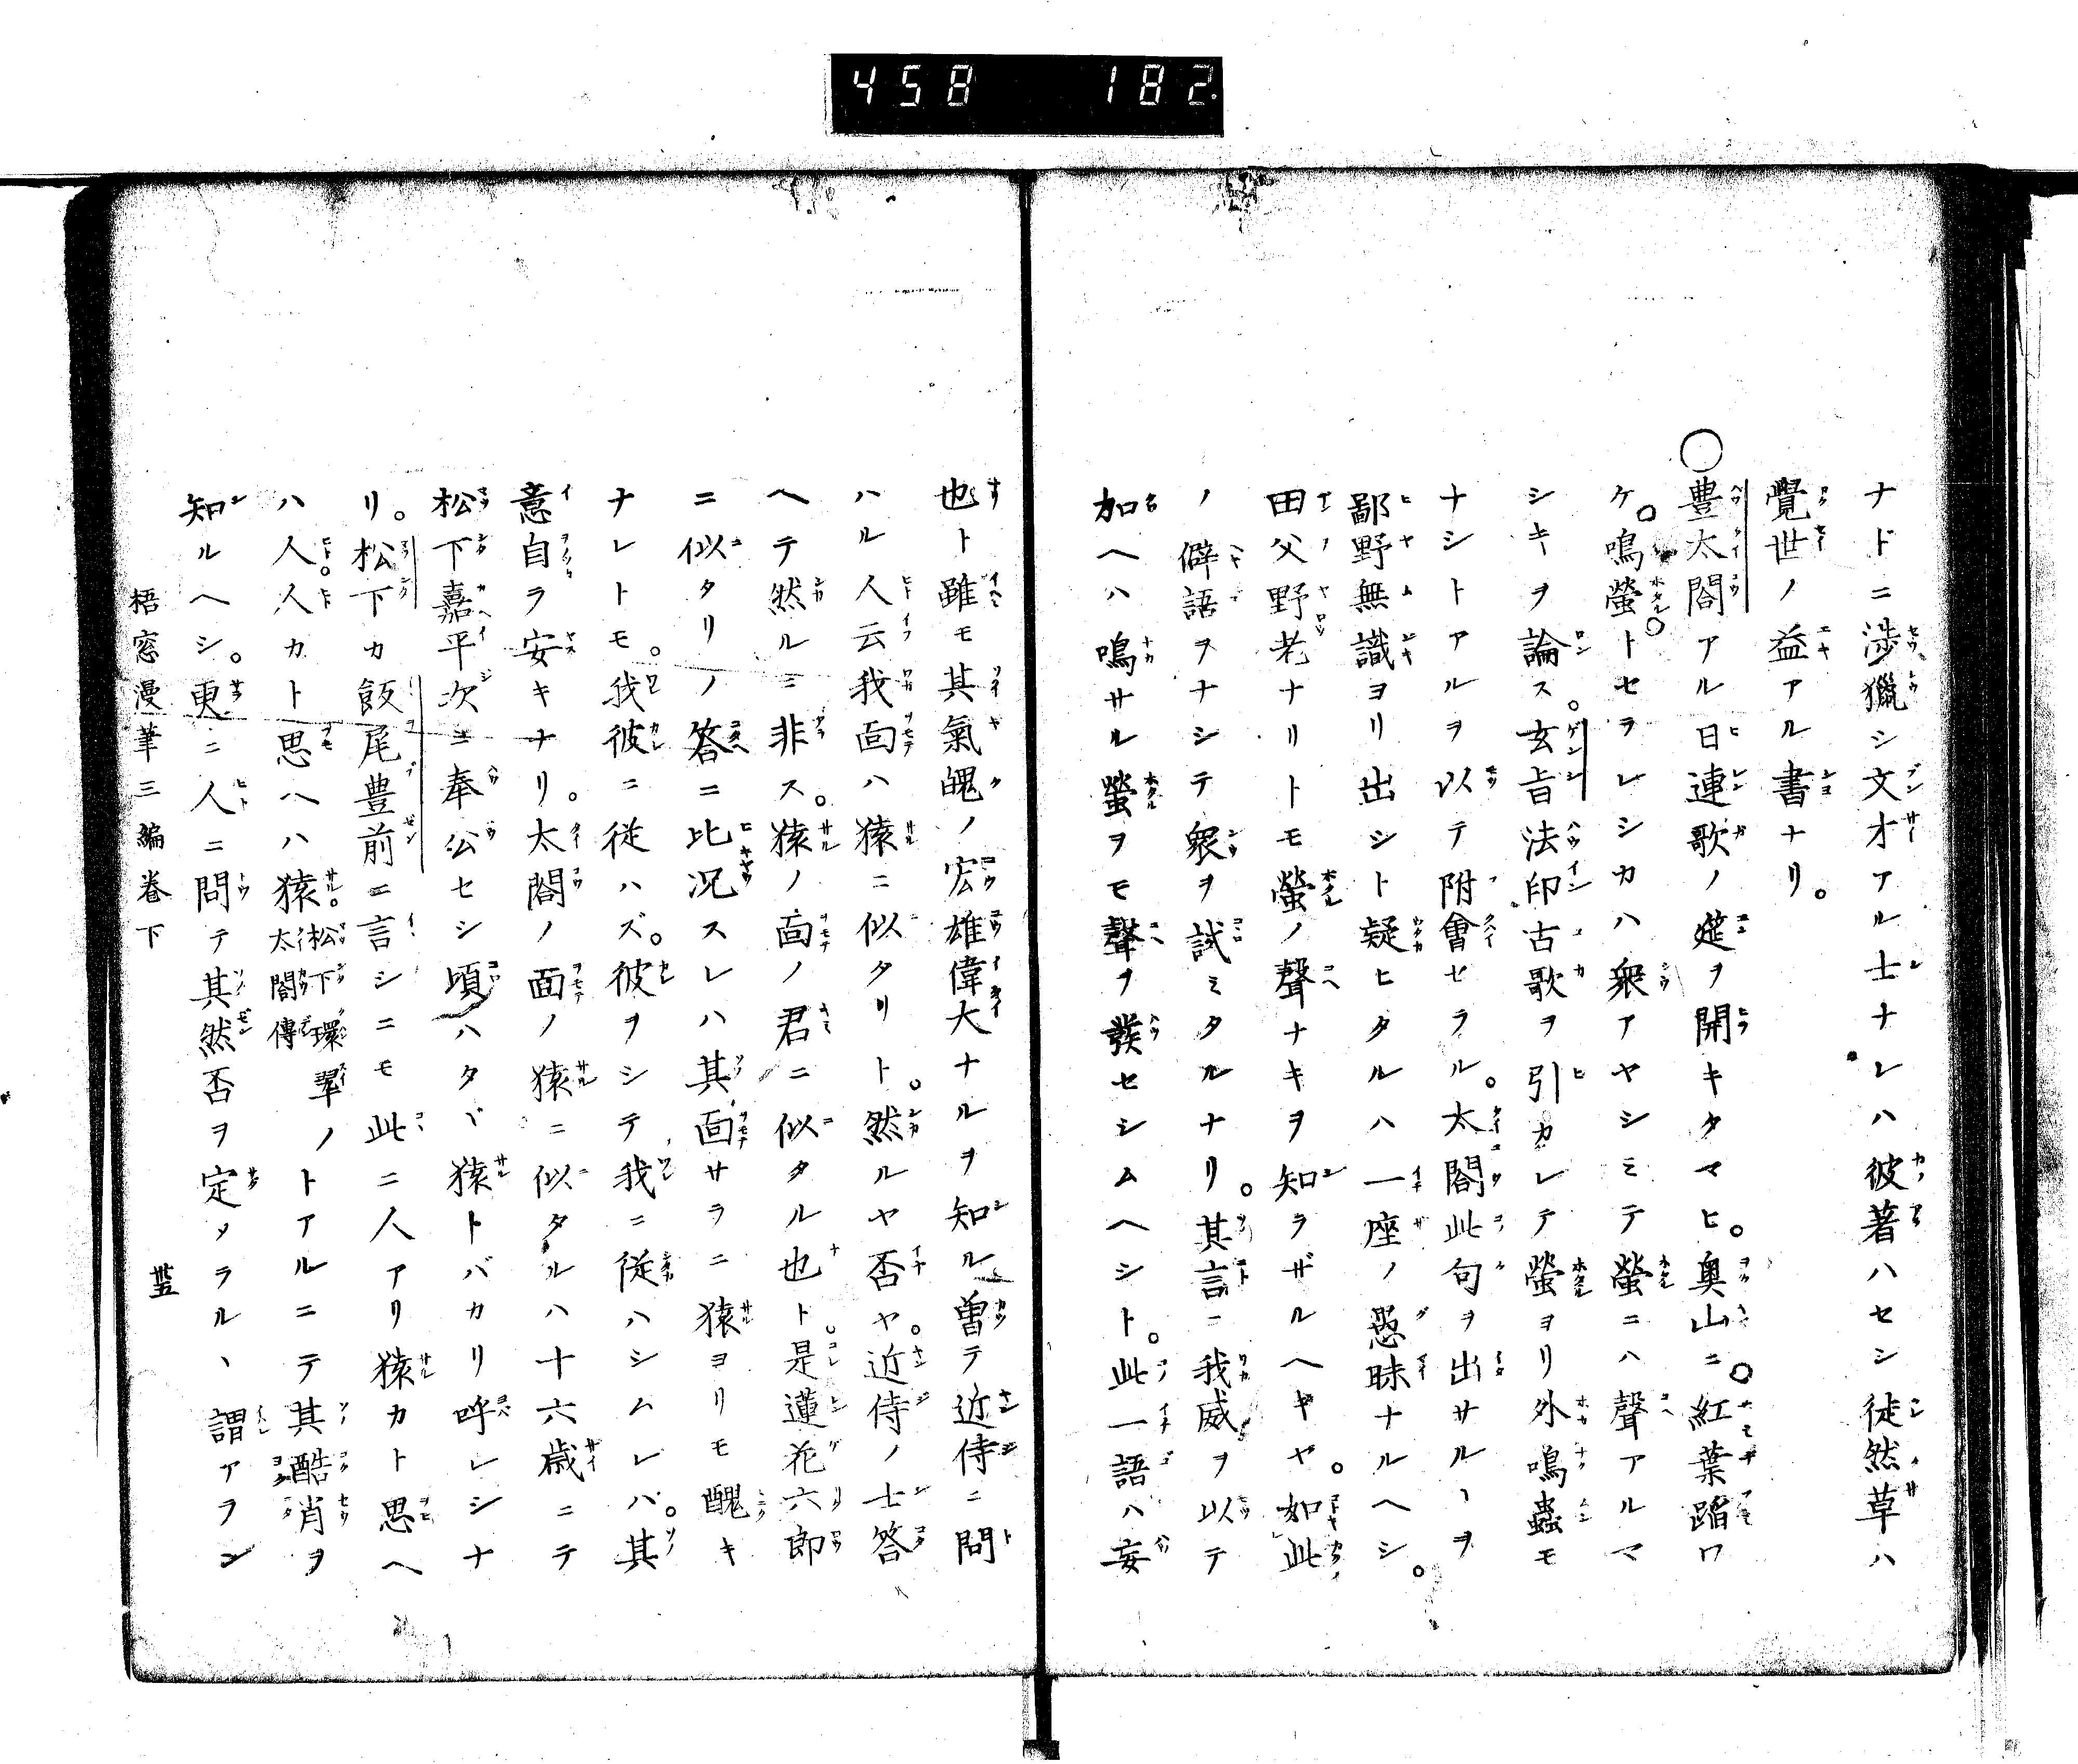 458 182
ナドニ渉獵シ文才アル士ナレハ彼著ハセシ徒然草ハ
覺世ノ益アル書ナリ。
○豊太閤アル日連歌ノ筵ヲ開キタマヒ。奥山ニ。紅葉蹈ワ
ケ。鳴螢。トセヲレシカハ衆アヤシミテ螢ニハ聲アルマ
シキヲ論ス。玄旨法印古歌ヲ引カレテ螢ヨリ外鳴蟲モ
ナシトアルヲ以テ附會セラル。太閤此句ヲ出サルヽヲ
鄙野無識ヨリ出シト疑ヒタルハ一座ノ愚昧ナルヘシ。
田父野老ナリトモ螢ノ聲ナキヲ知ラザルヘキヤ。如此
ノ僻語ヲナシテ衆ヲ試ミタルナリ。其言ニ我威ヲ以テ
加ヘハ鳴サル螢ヲモ聲ヲ發セシムヘシト。此一語ハ妄
也ト雖モ其氣魄ノ宏雄偉大ナルヲ知ル曽テ近侍ニ問
ハル人云我面ハ猿ニ似タリト。然ルヤ否ヤ。近侍ノ士答
ヘテ然ルニ非ス。猿ノ面ノ君ニ似タル也ト。是蓮花六郎
ニ似タリノ答ニ比况スレハ其面サラニ猿ヨリモ醜キ
ナレトモ。我彼ニ従ハズ。彼ヲシテ我ニ従ハシムレバ。其
意自ラ安キナリ。太閤ノ面ノ猿ニ似タルハ十六歳ニテ
松下嘉平次ニ奉公セシ頃ハタヾ猿トバカリ呼レシナ
リ。松下カ飯尾豊前ニ言シニモ此ニ人アリ猿カト思ヘ
ハ人人カト思ヘハ猿。松下環翠ノトアルニテ其酷肖ヲ
太閤傳
知ルヘシ。更ニ人ニ問テ其然否ヲ定メラルヽ謂アラン
梧窓漫筆三編巻下